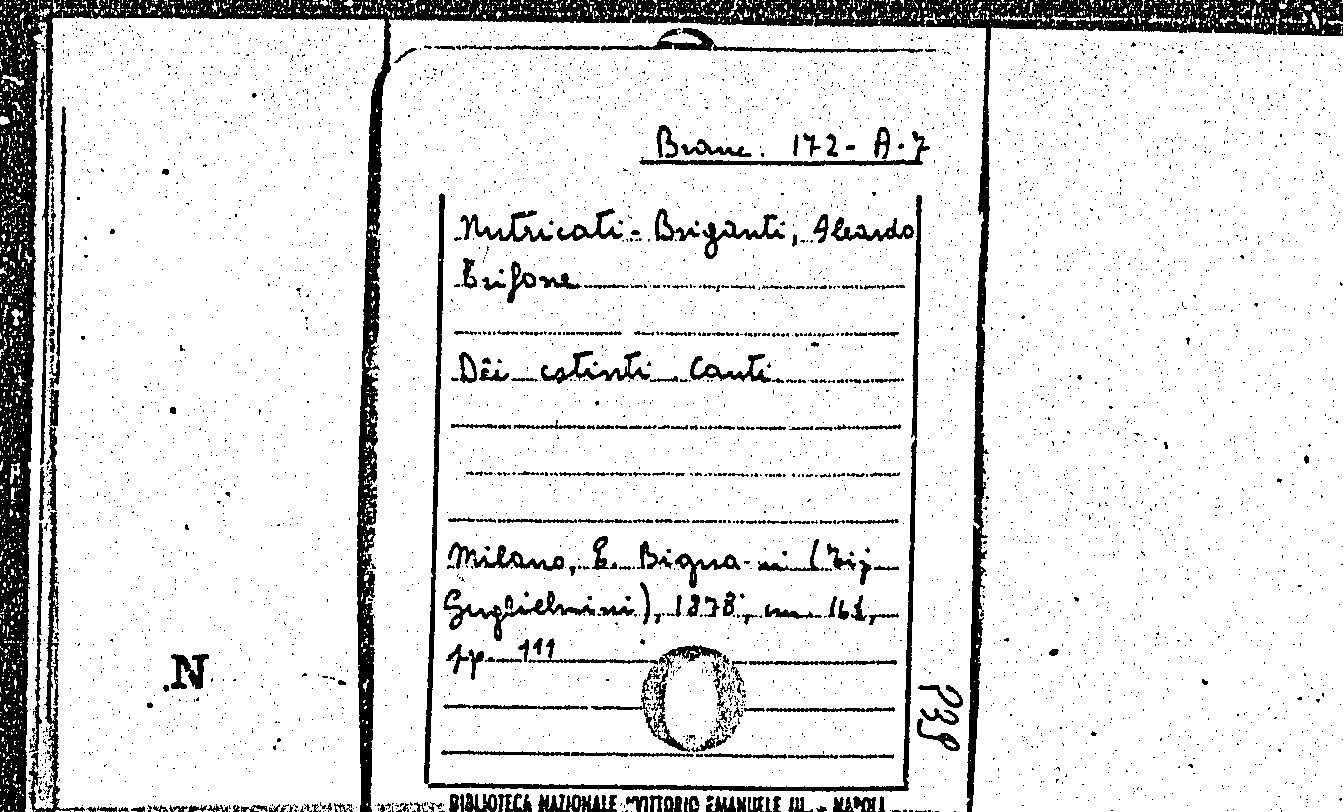 Branc. 172-A-7
Nutricati-Briganti, Aleardo
Trifone
Dei estinti Canti
Milano, E. Bigna-mi (Tip.
Guglielmini), 1878, cm. 16½,
pp. 111
N
BIBLIOTECA NAZIONALE "VITTORIO EMANUELE III„ - NAPOLI